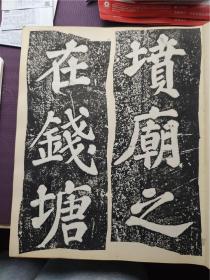 墳廟之
在錢塘